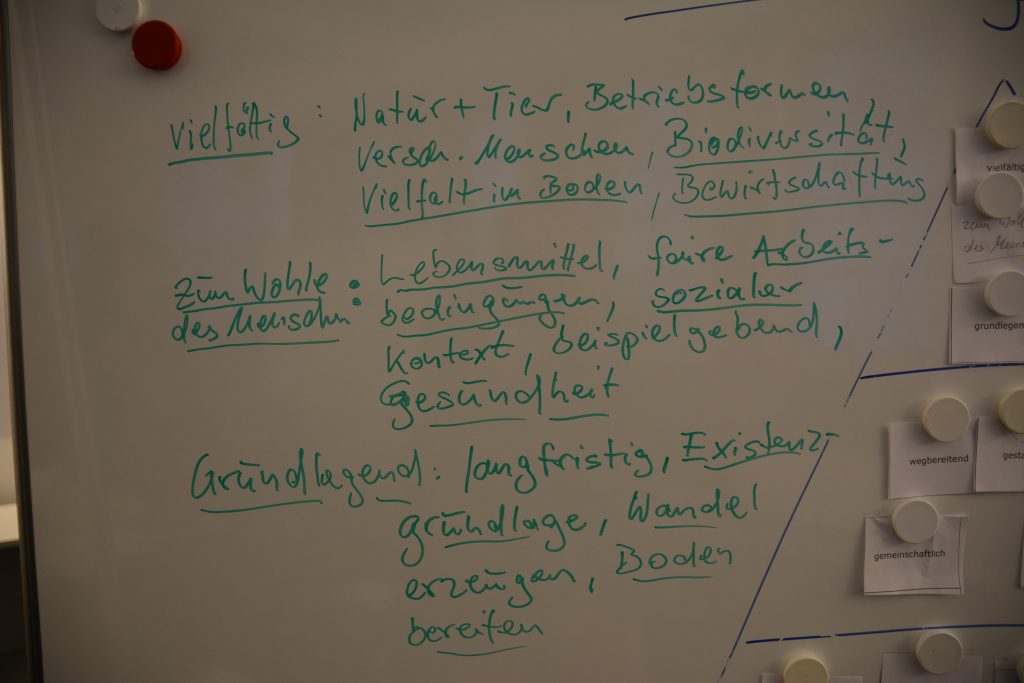 vielfältig : Natur + Tier, Betriebsformen,
versch. Menschen, Biodiversität,
Vielfalt im Boden, Bewirtschaftung
zum Wohle : Lebensmittel, faire Arbeits-
des Menschen bedingungen, sozialer
Kontext, beispielgebend,
Gesundheit
Grundlagend : langfristig, Existenz-
grundlage, Wandel
erzeugen, Boden
bereiten
vielfältig
zum Wohle
des Mens
grundlegen
wegbereitend
gesta
gemeinschaftlich